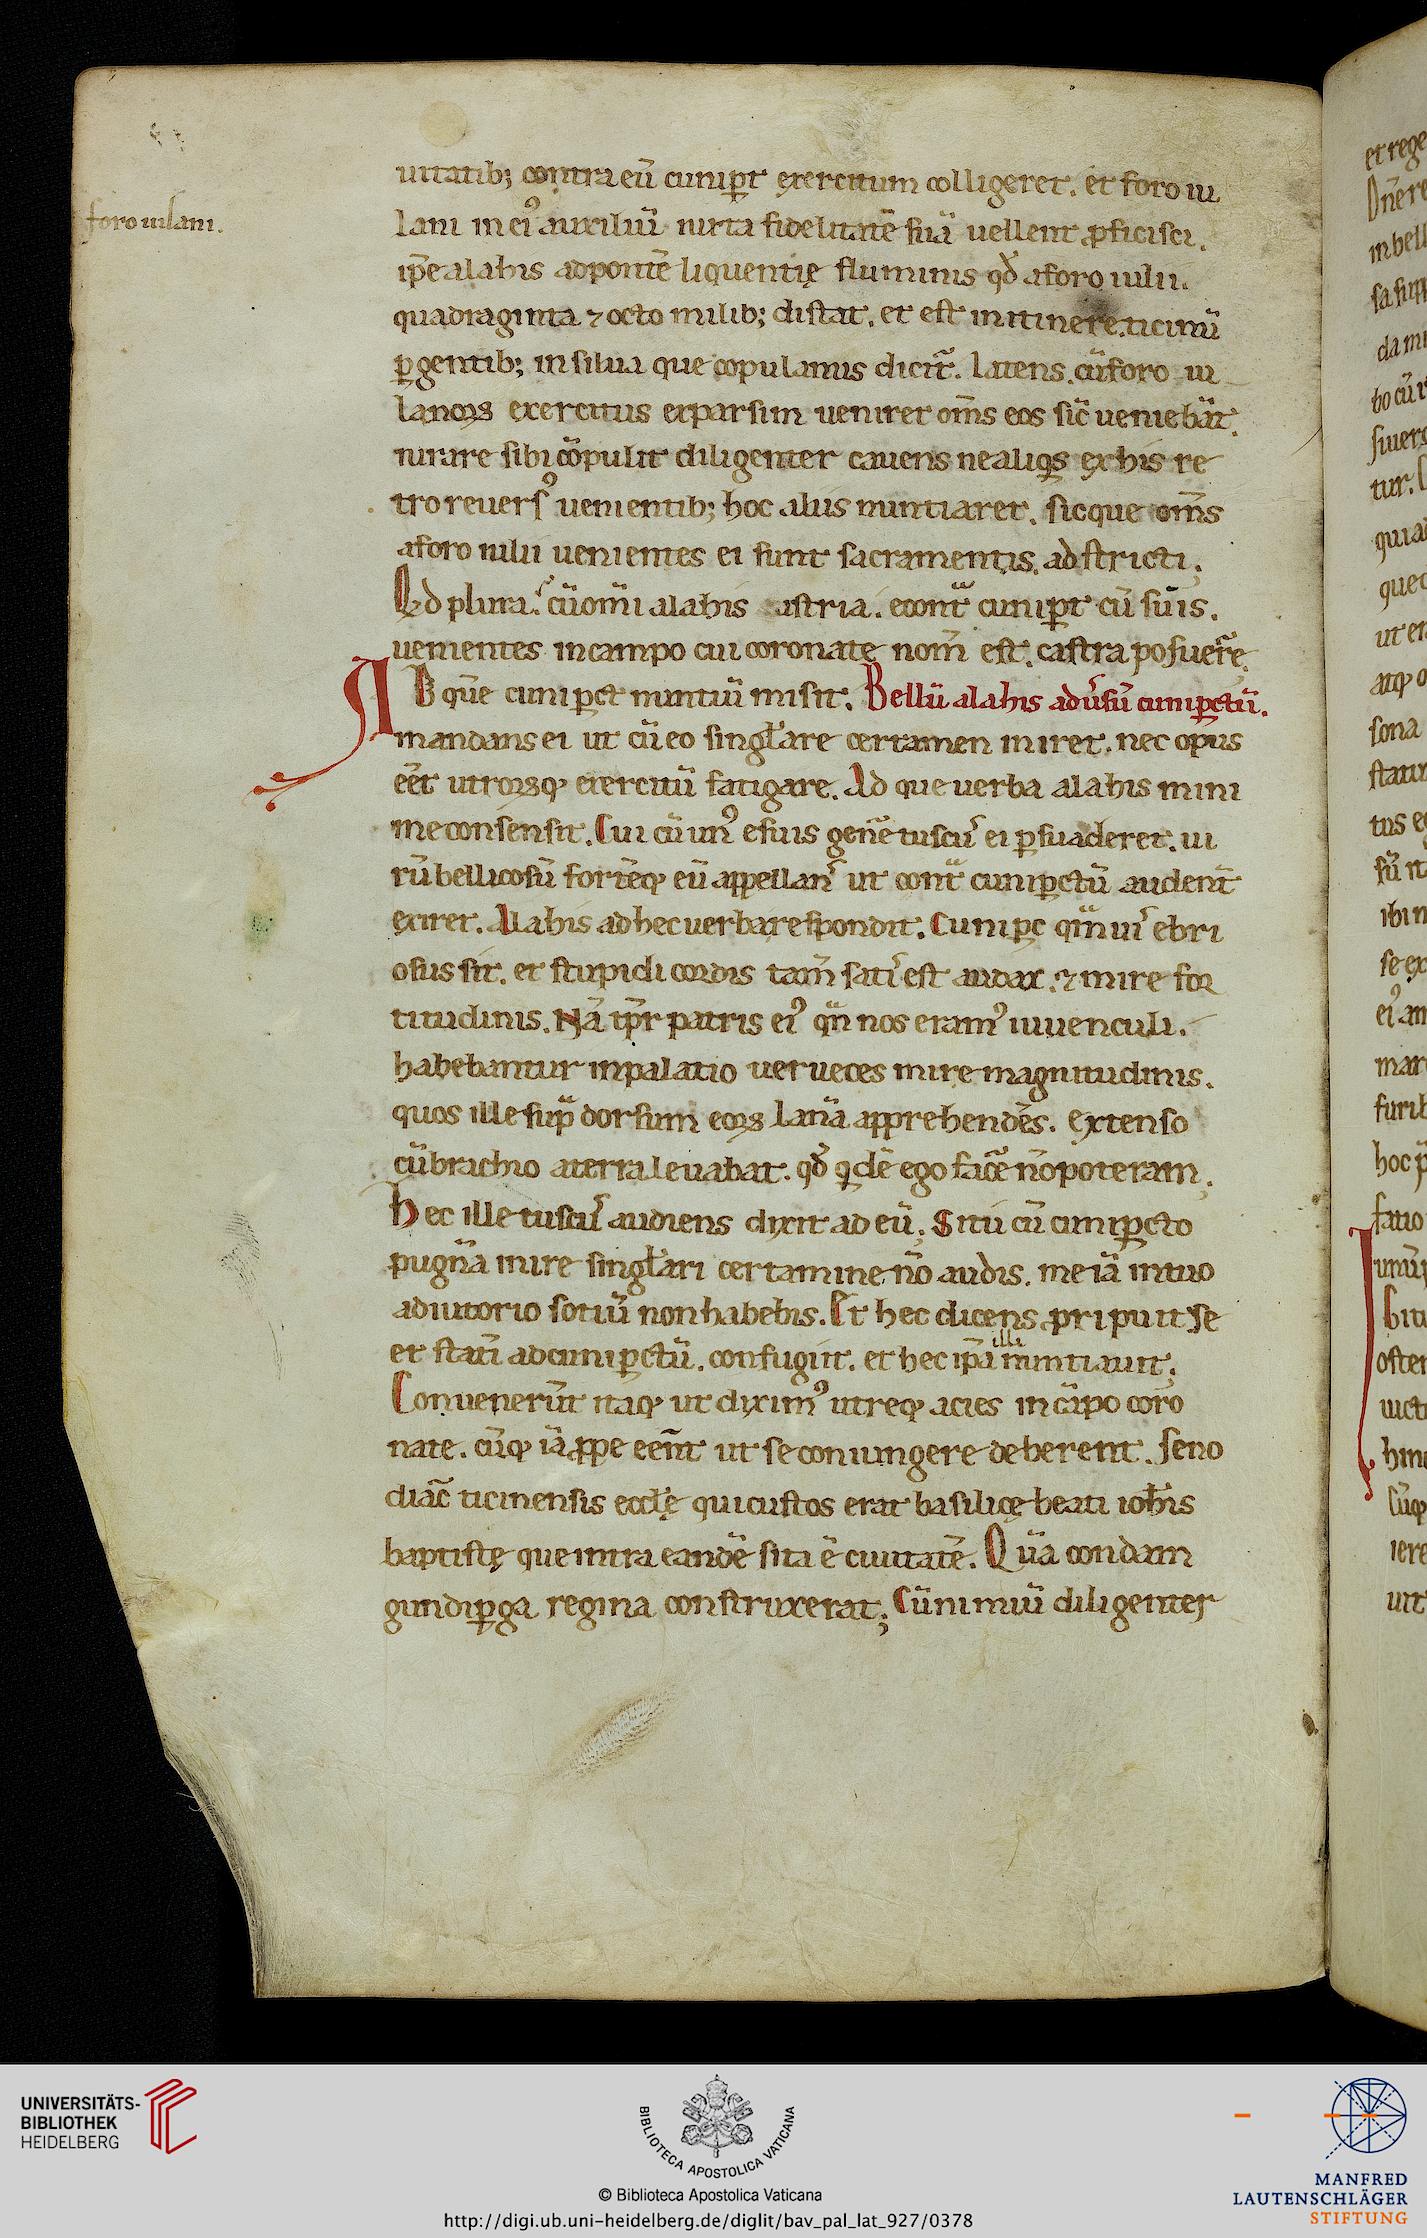 foro iulani.
uitatib; contra eū cunip̄t exercitum colligeret. et foro iu
lani in ei⁹ auxiliū iuxta fidelitatē suā uellent ꝓficisci.
ip̄e alahis ad pontē liquentię fluminis qđ a foro iulii.
quadraginta ⁊ octo milib; distat. et est in itinere ticinū
ꝑgentib; in silua que copulanus dicit̄. latens. cū foro iu
lanoꝝ exercitus exparsim ueniret om̄s eos sic̄ ueniebāt.
iurare sibi cōpulit diligenter cauens ne aliqͥs ex his re
tro reuers⁹ uenientib; hoc aliis nuntiaret. sicque om̄s
a foro iulii uenientes ei sunt sacramentis. adstricti.
cū om̄i alahis astria. econt̄ cunip̄t cū suis.
uenientes in campo cui coronate nom̄ est. castra posuer̄e
AD quē cunipct nuntiū misit. Bellū alahis adu̓sū cuniꝑctū.
mandans ei ut cū eo singłare certamen iniret. nec opus
eēt utroꝝqꝫ exercitū fatigare. Ad que uerba alahis mini
me consensit. Cui cū un⁹ e suis gen̄e tuscu᷒ ei ꝑsuaderet. ui
rū bellicosū fortēqꝫ eū appellans ut cont̄ cuniꝑctū audent̄
exiret. Alahis ad hec uerba respondit. Cunipc qm̄uis ebri
osus sit. et stupidi cordis tam̄ satis est audax. ⁊ mire for
titudinis. Nā tp̄r patris ei⁹ qn̄ nos eram⁹ iuuenculi.
habebantur in palatio uerueces mire magnitudinis.
quos ille sup̄ dorsum eoꝝ lanā apprehendēs. extenso
cū brachio a terra leuabat. qđ qͥdē ego fac̄e nō poteram.
Hec ille tuscus audiens dixit ad eū. Si tu cū cuniꝑcto
pugnā inire singłari certamine nō audis. me iā in tuo
adiutorio sotiū non habebis. Et hec dicens ꝓripuit se
et statī ad cuniꝑctū. confugiit. et hec ip̄a illi nuntiauit.
Conuenerūt itaqꝫ ut dixim⁹ utreqꝫ acies in cāpo coro
nate. cūqꝫ iā ꝓpe eēnt ut se coniungere deberent. seno
diāc ticinensis eccłę qui custos erat basilicę beati ioħis
baptistę que intra eandē sita ē ciuitatē. Quā condam
gundiꝑga regina construxerat; Cū nimiū diligenter
UNIVERSITÄTS-
BIBLIOTHEK
HEIDELBERG
BIBLIOTECA APOSTOLICA VATICANA
© Biblioteca Apostolica Vaticana
http://digi.ub.uni-heidelberg.de/diglit/bav_pal_lat_927/0378
MANFRED
LAUTENSCHLÄGER
STIFTUNG